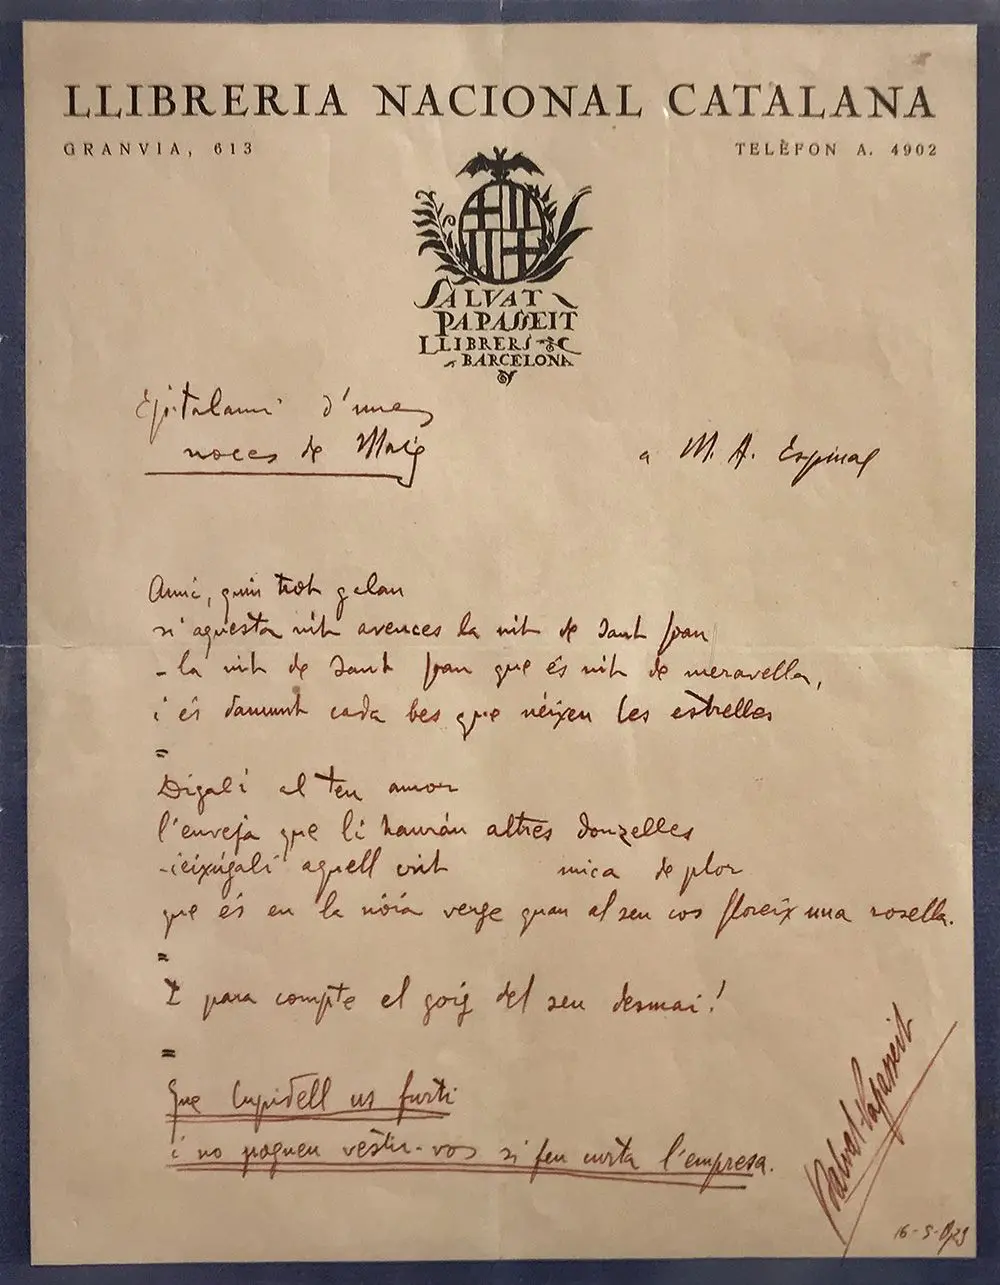 LLIBRERIA NACIONAL CATALANA
GRANVIA, 613
TELÈFON A. 4902
SALVAT
PAPASSEIT
LLIBRERS
BARCELONA
Epitalami d'unes
noces de Maig
a M. A. Espinal
Amic, quin trot galan
si aquesta nit avences la nit de Sant Joan
- la nit de Sant Joan que és nit de meravella,
i és damunt cada bes que néixen les estrelles
=
Digali al teu amor
l'enveja que li haurán altres donzelles
-i eixúgali aquell mica de plor
que és en la nòia verge quan al seu cos floreix una rosella.
=
I para compte el goig del seu desmai!
=
Que Cupidell us furti
i no pogueu vestir-vos si feu curta l'empresa.
Salvat-Papasseit